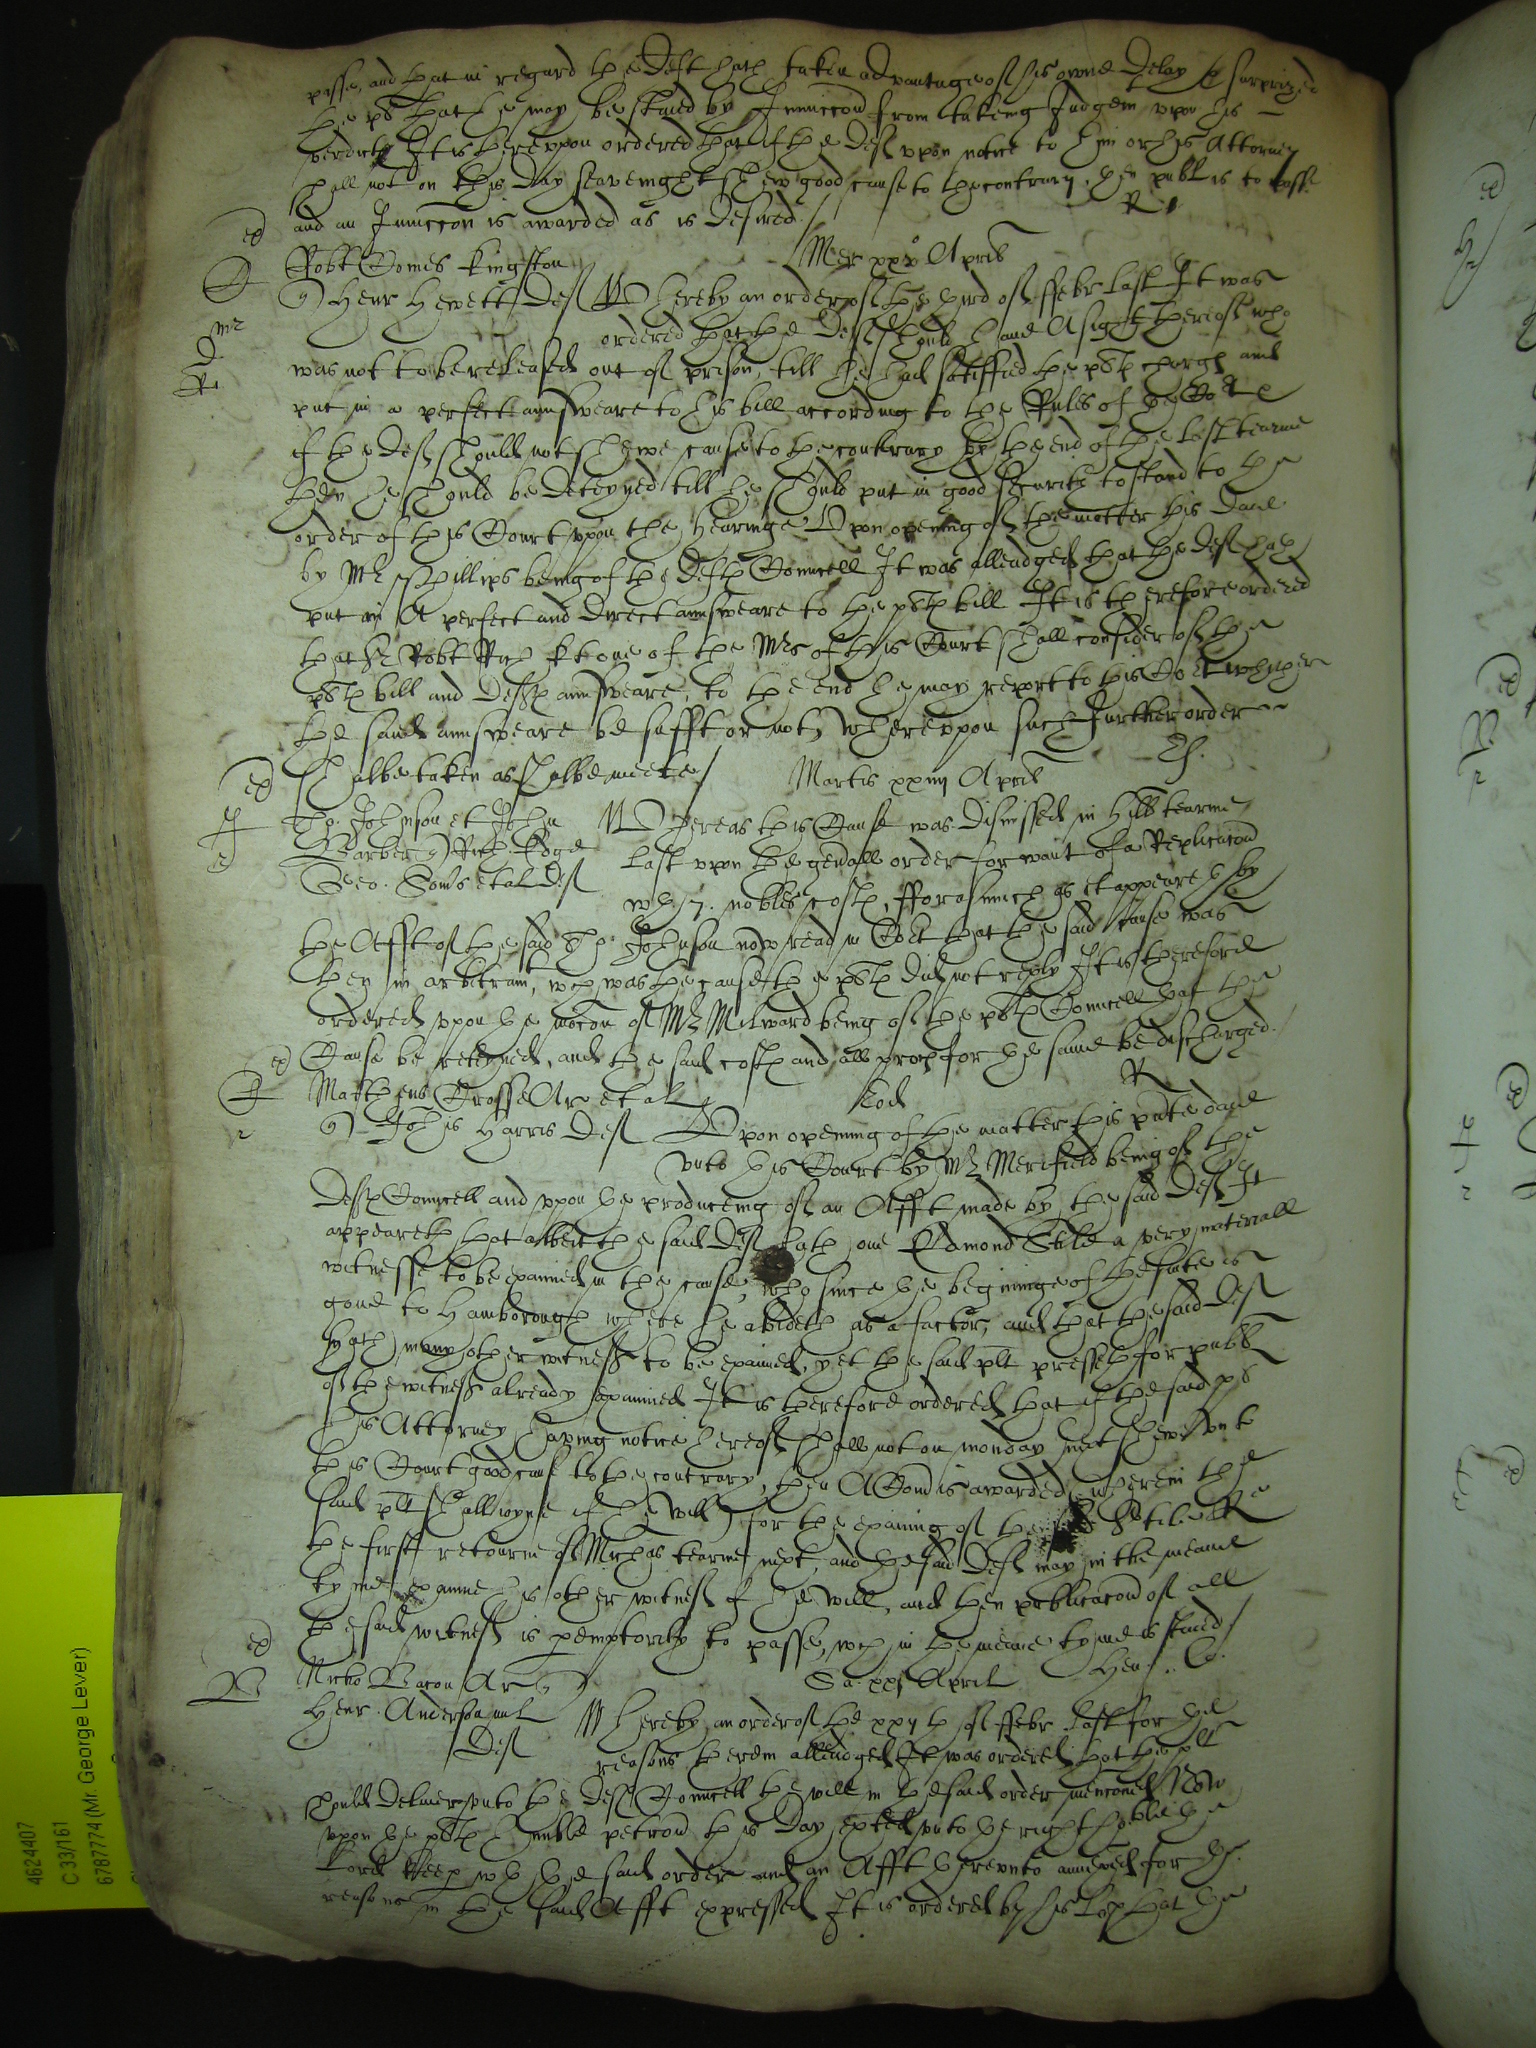 passe, and that in regard the Deft hath taken advantage of his owne Delay & surprized
the pl that he may be staied by Iniunccon from takeing Iudgem upon his
verdict It is hereupon ordered that if the Deft upon notice to him or his Attorney
shall not on this day seavenight shew good cause to the contrary, then publ is to passe
and an Iniunccon is awarded as is desired / R
Robt Comes kingston Mer xxv Aprilis
Henr Hewett Deft Whereby an order of the third of ffebr last It was
ordered that the Deft should have A sight thereof who
was not to be released out of prison, till he had satisfied the plts charge and
put in a perfect aunsweare to his bill according to the Rules of the Cort &
if the Deft should not shewe cause to the contrary by the end of the last tearme
then he should be deteyned till he should put in good securitie to stand to the
order of this Court upon the hearinge Upon opening of the matter this daie
by Mr Phillips being of the Defts Councell It was alleadged that the Deft hath
put in A perfect and direct aunsweare to the plts bill It is therefore ordered
that Sr Robt Rich kt one of the Mrs of this Court shall consider of the
plts bill and Defts aunsweare, to the end he may report to this Cort whether
the said aunsweare be sufft or not, whereupon such further order
shalbe taken as shalbe meete /
Martis xxiiij April
Tho: Johnson et John Whereas this Cause was dismissed in Hill tearme
Barber Rich Edge last upon the genall order for want of a Replicacon
Geo: et al Deft wth 7 nobles costs, fforasmuch as it appeareth by
the Afft of the said Tho: Johnson now read in Cort that the said cause was
then in arbitram, wch was the cause the plts did not reply It is therefore
ordered upon the mocon of Mr Milward being of the plts Councell that the
Cause be reteyned, and the said costs and all proces for the same be discharged.
Matthews Crosse Ar et al Eod R
Johis Harris Deft Upon opening of the matter this pnte daie
unto this Court by Mr Merefield being of the
Defts Councell and upon the produceing of an Afft made by the said Deft It
appeareth that albeit the said Deft hath one Edmond Stile a very materiall
witnesse to be examined in the cause, who since the begininge of the suite is
gone to Hamborough where he abideth as a factor, and that the said Deft
hath many other witness to be examined, yet the said plt presseth for publ
of the witness already examined It is therefore ordered that if the said pl
his Attorney having notice hereof shall not on monday next shew unto
this Court good cause to the contrary, then A Comis awarded wherein the
said plt shall ioyne if he will for the examing of the said Stile
the first retourne of Michas tearme next, and the said Deft may in the meane
tyme examine his other witness if he will, and then publicacon of all
the said witness is pemptorily to passe, wch in the meane tyme is staied /
Nicho Bacon Ar Sa. xxj April Hen:
Henr Anderson mil Whereby an order of the of ffebr last for the
Deft reasons therein alleadged It was ordered that the plt
should deliver unto the Defts Councell the will in the said order menconed Now
upon the plts humble peticon this day exhibd unto the right hoble the
Lord Keep wth the said order and an Afft thereunto annexed for the
reasons in the said Afft expressed It is ordered by his Lop that the
4624407
C 33/161
6787774 (Mr. George Lever)